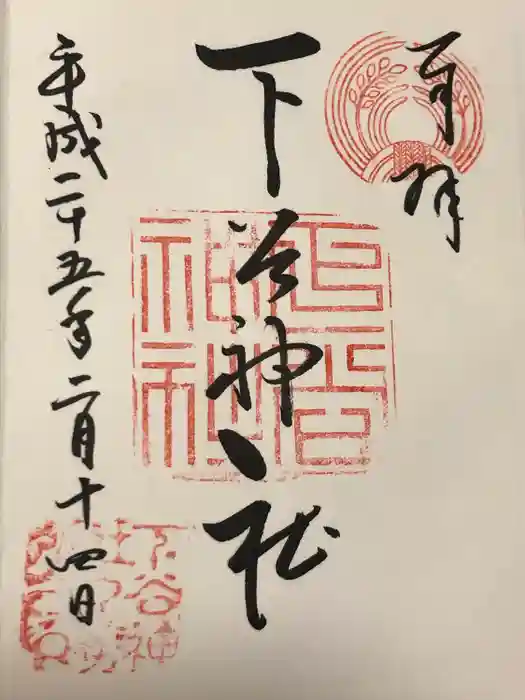 奉拝
下谷神社
平成二十五年二月十四日
下谷神社